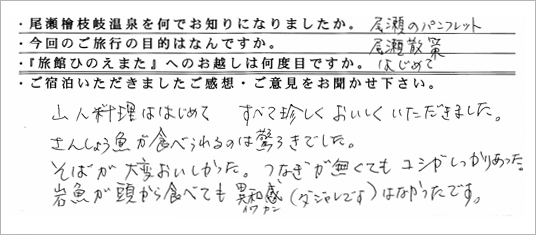 ・尾瀬檜枝岐温泉を何でお知りになりましたか。 尾瀬のパンフレット
・今回のご旅行の目的はなんですか。 尾瀬散策
・『旅館ひのえまた』へのお越しは何度目ですか。 はじめて
・ご宿泊いただきましたご感想・ご意見をお聞かせ下さい。
山人料理ははじめて すべて珍しくおいしくいただきました。
さんしょう魚が食べられるのは驚ろきでした。
そばが大変おいしかった。つなぎが無くてもコシがしっかりあった。
岩魚が頭から食べても異和感(ダジャレです)はなかったです。
イワカン